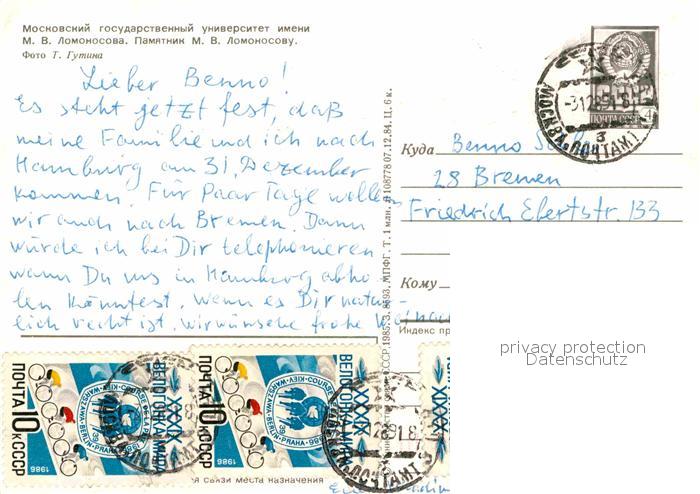 Московский государственный университет имени
М. В. Ломоносова. Памятник М. В. Ломоносову.
Фото Т. Гутина
Lieber Benno!
Es steht jetzt fest, daß
meine Familie und ich nach
Hamburg am 31. Dezember
kommen. Für Paar Tage wollen
wir auch nach Bremen. Dann
würde ich bei Dir telephonieren
wann Du uns in Hamburg abho-
len könntest, wenn es Dir natür-
lich recht ist. Wir wünschen frohe
108778 07.12.84. Ц. 6 к.
МПФГ. Т. 1 млн.
СССР. 1985. З. 8693.
ПОЧТА СССР
4
МОСКВА ПОЧТАМТ
Куда
Benno
28 Bremen
Friedrich Ebertstr. 133
Кому
Индекс пр
privacy protection
Datenschutz
ПОЧТА 10К СССР
XXXIX ВЕЛОГОНКА МИРА
COURSE DE LA PAIX
WARSZAWA-BERLIN-PRAHA
1986
ПОЧТА 10К СССР
XXXIX ВЕЛОГОНКА МИРА
WARSZAWA-BERLIN-PRAHA
1986
МОСКВА ПОЧТАМТ
я связи места назначения